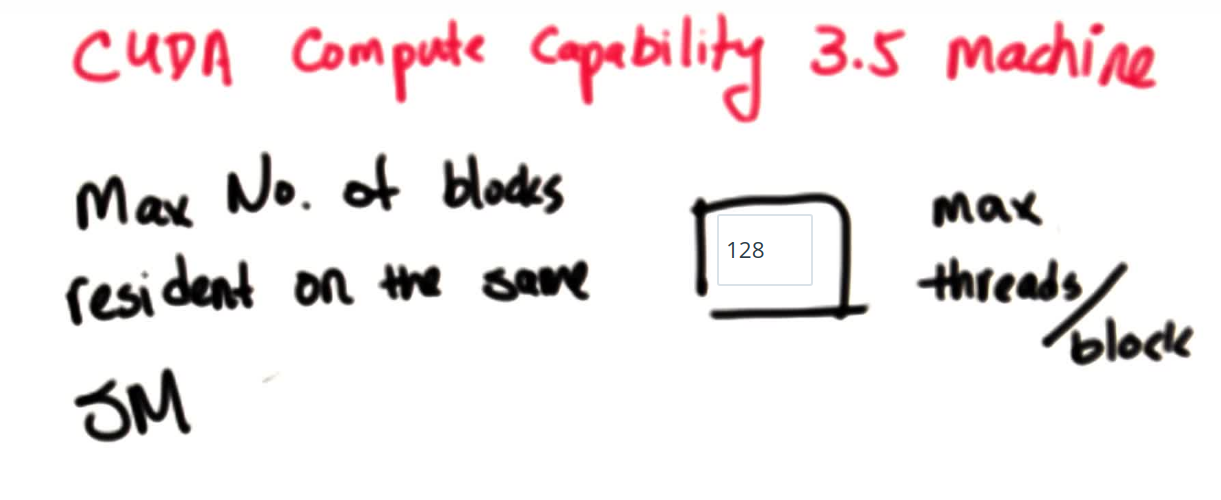 CUDA Compute Capability 3.5 Machine
Max No. of blocks
resident on the same
SM
128
max
threads/
block